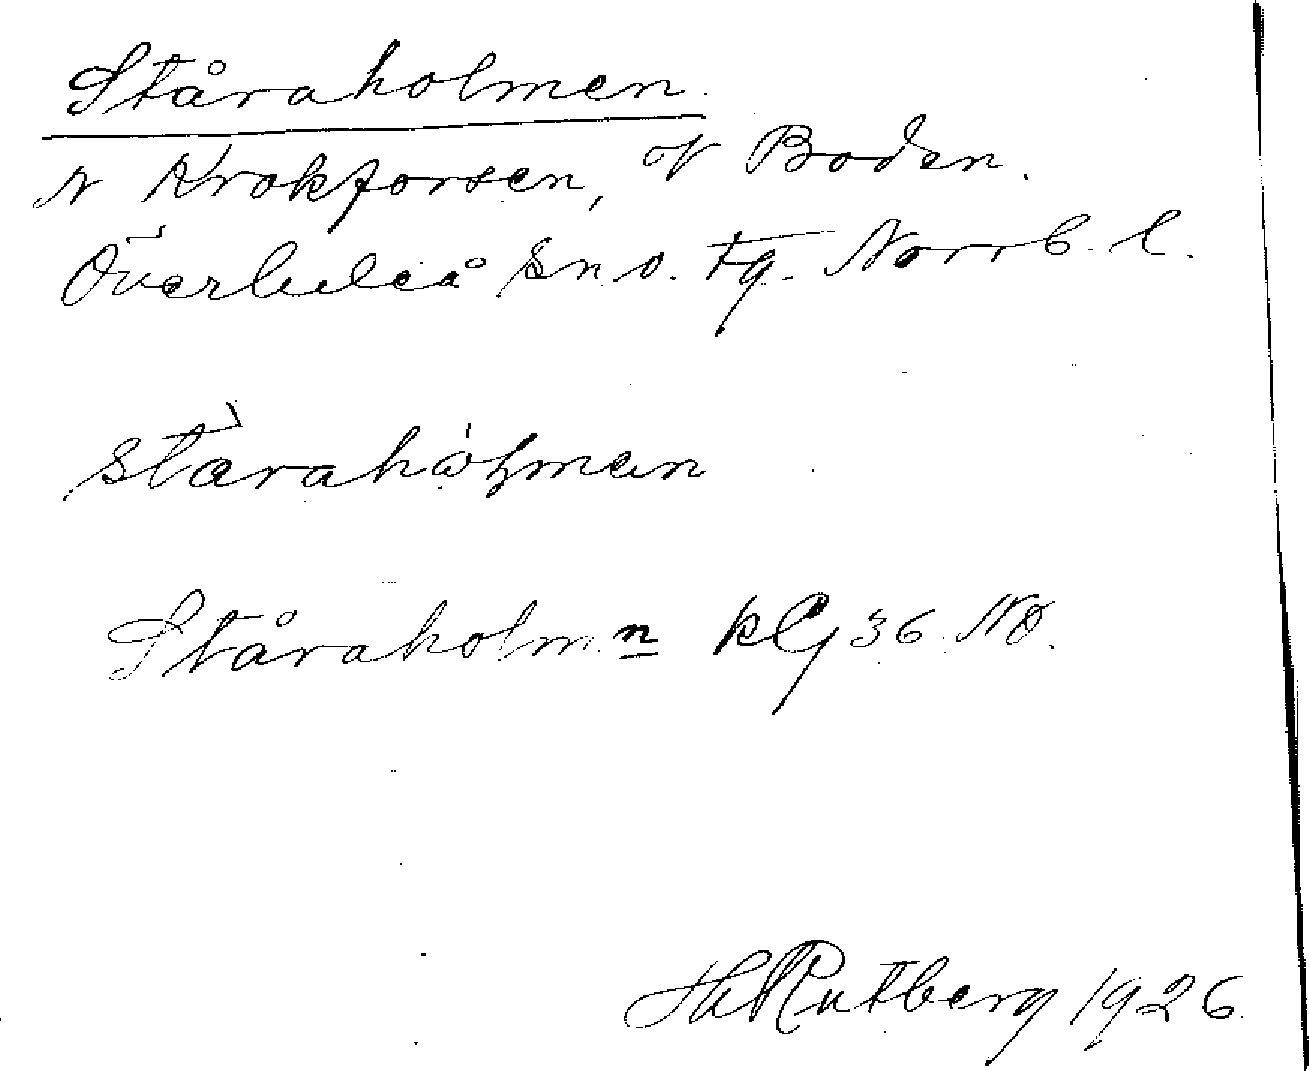 Ståraholmen.
N Krokforsen, V Boden.
Överluleå sn o. tg. Norrb. l.
Ståraholmn kG 36 NO.
Hl Rutberg 1926.